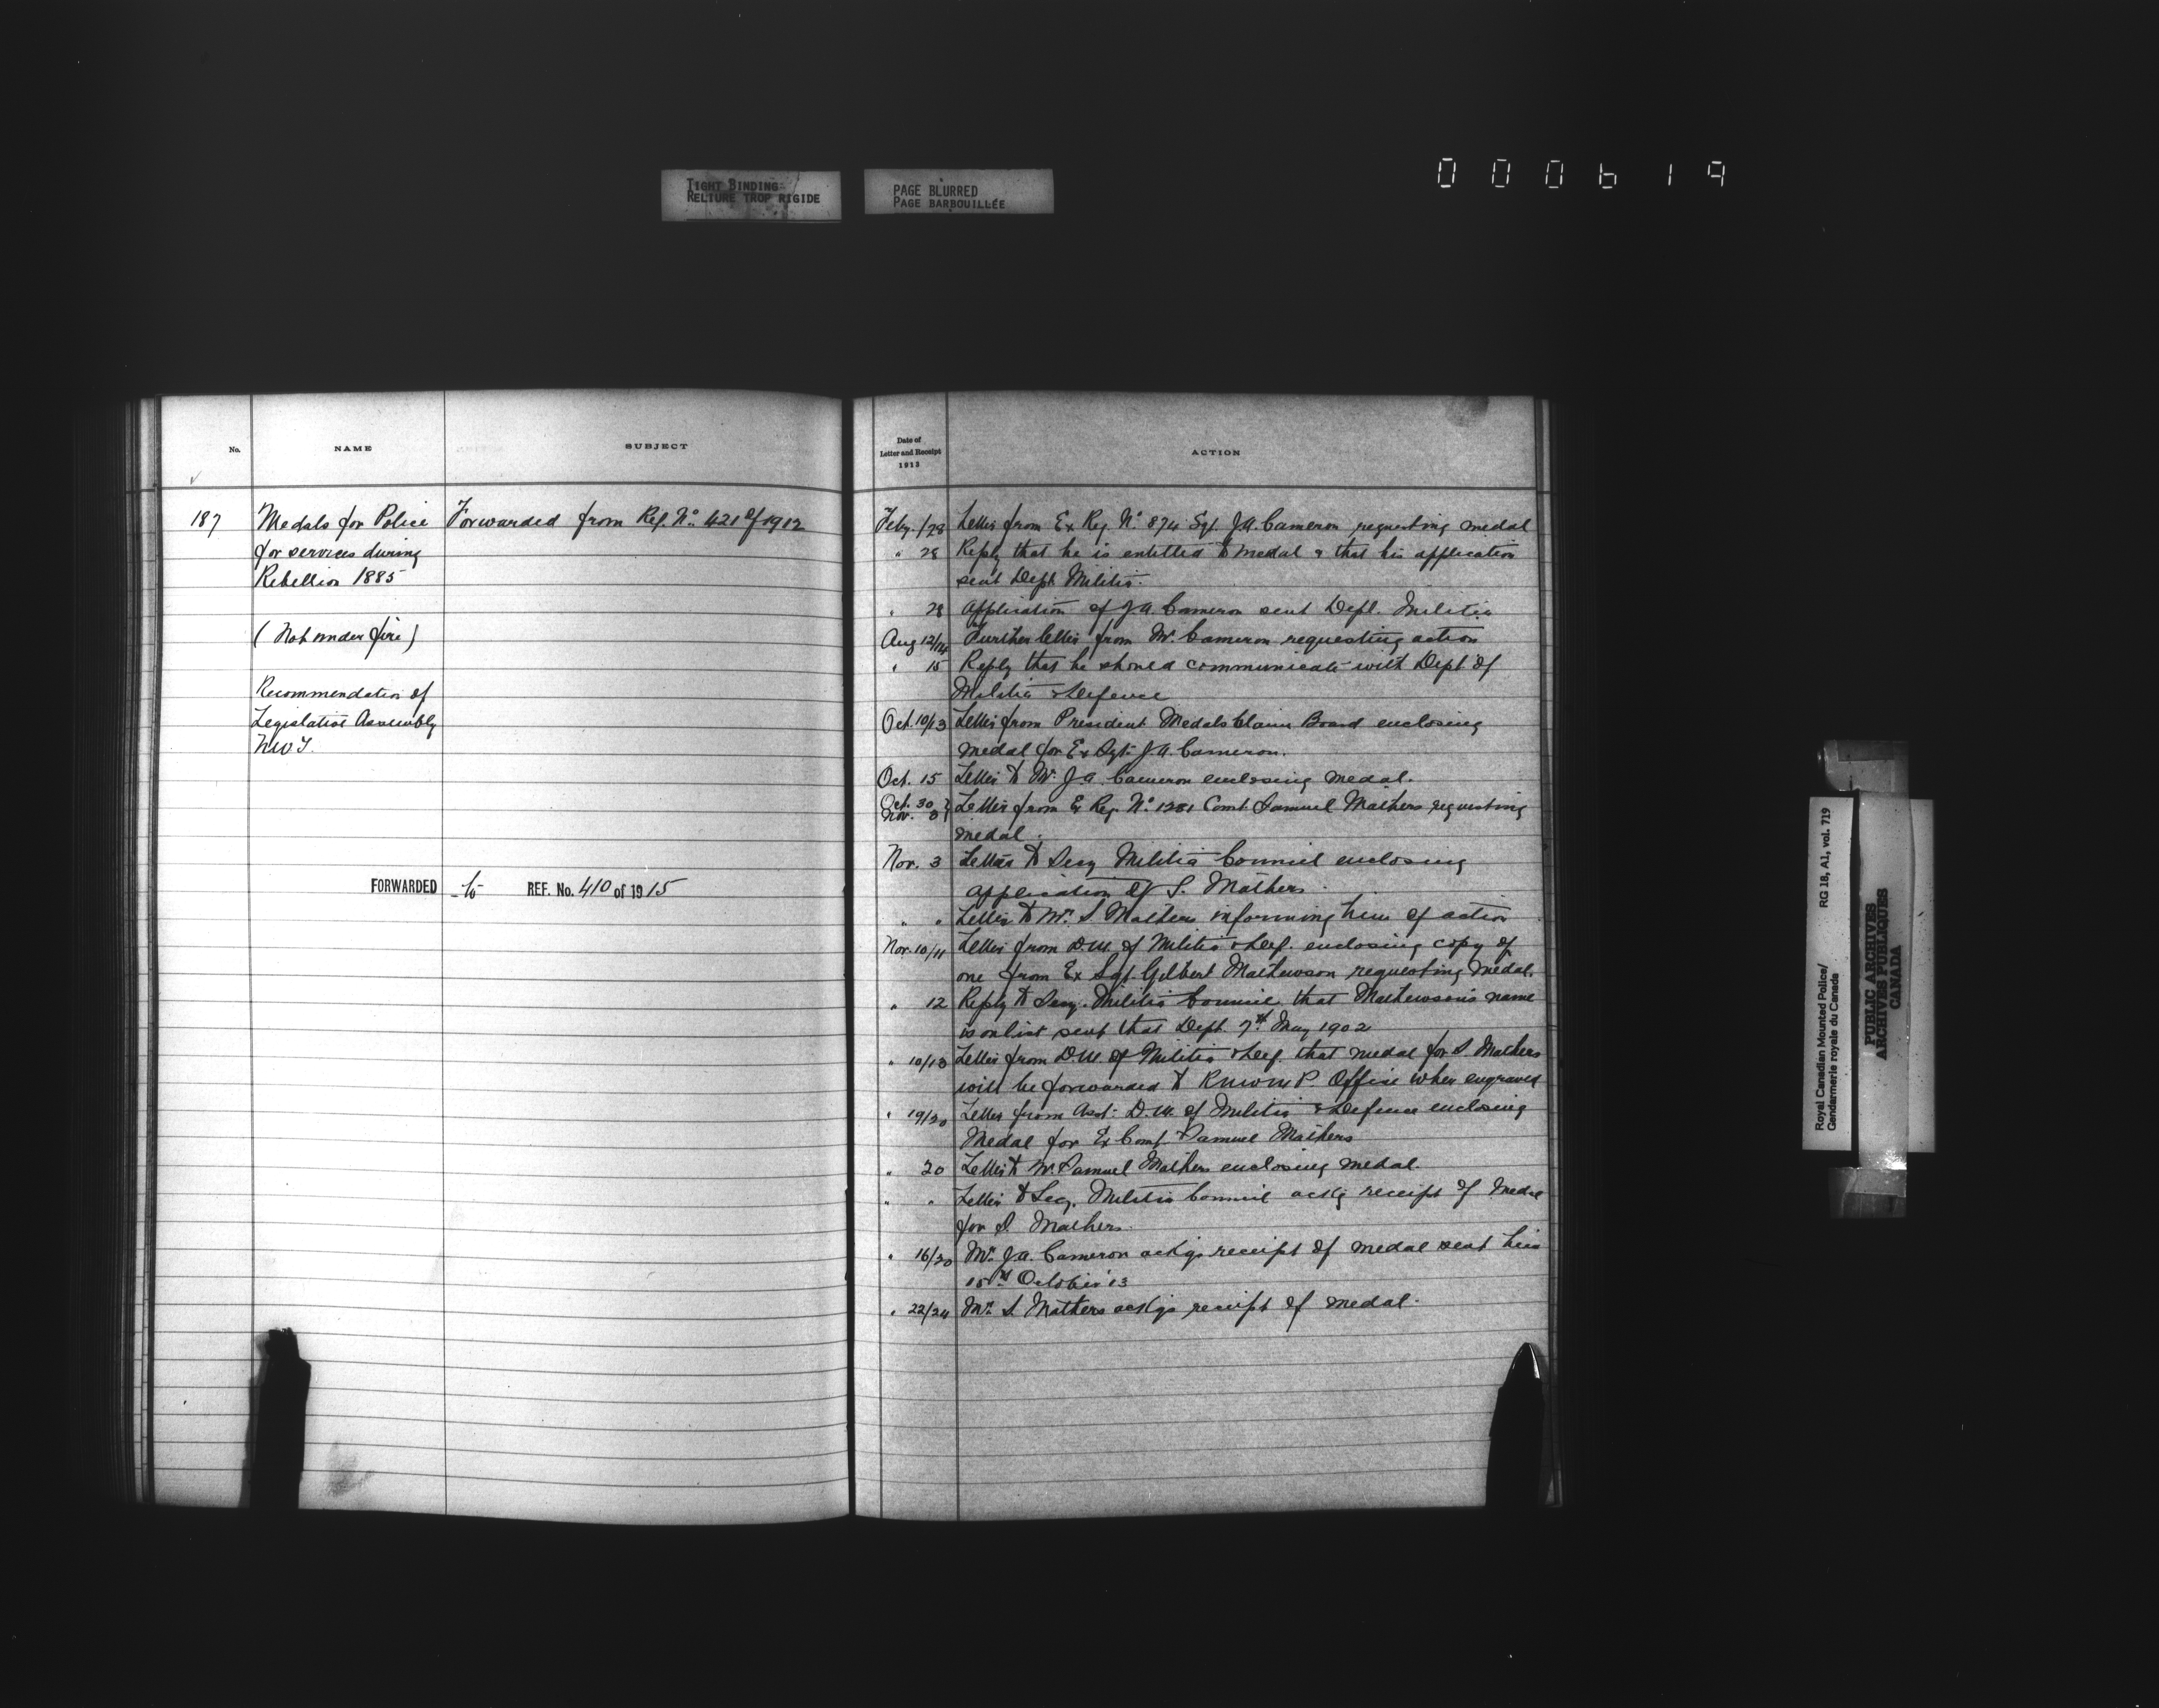 TIGHT BINDING
RELIURE TROP RIGIDE
PAGE BLURRED
PAGE BARBOUILLÉE
000619
No.
NAME
SUBJECT
187
Medals for Police
for services during
Rebellion 1885
(Not under fire)
Recommendation of
Legislative Assembly
NWT.
Forwarded from Ref. No. 421 of 1912
FORWARDED to REF. No. 410 of 1915
Date of
Letter and Receipt
1913
ACTION
Feby. /28 Letter from Ex Reg. No. 874 Sgt. J.A. Cameron requesting medal
" 28 Reply that he is entitled to medal & that his application
sent Dept Militia.
" 28 Application of J.A. Cameron sent Dept. Militia
Aug 12/14 Further letter from Mr. Cameron requesting action
" 15 Reply that he should communicate with Dept of
Militia & Defence
Oct. 10/13 Letter from President Medals Claim Board enclosing
medal for Ex Sgt. J.A. Cameron.
Oct. 15 Letter to Mr. J.A. Cameron enclosing medal.
Oct. 30
Nov. 3 Letter from Ex Reg. No. 1281 Const. Samuel Mathers requesting
medal.
Nov. 3 Letter to Secy Militia Council enclosing
application of S. Mathers.
" " Letter to Mr. S. Mathers informing him of action
Nov. 10/11 Letter from D.M. of Militia & Def. enclosing copy of
one from Ex Sgt. Gilbert Mathewson requesting medal.
" 12 Reply to Secy. Militia Council that Mathewson's name
is on list sent that Dept. 7th May 1902
" 10/13 Letter from D.M. of Militia & Def. that medal for S. Mathers
will be forwarded to RNWMP. Office when engraved
" 19/20 Letter from Asst. D.M. of Militia & Defence enclosing
Medal for Ex Const. Samuel Mathers
" 20 Letter to Mr. Samuel Mathers enclosing medal.
" " Letter to Secy. Militia Council ackg receipt of Medal
for S. Mathers.
" 16/20 Mr. J.A. Cameron ackgs receipt of medal sent him
15th October '13
" 22/24 Mr. S. Mathers ackgs receipt of medal.
Royal Canadian Mounted Police/
Gendarmerie royale du Canada
RG 18, A1, vol. 719
PUBLIC ARCHIVES
ARCHIVES PUBLIQUES
CANADA